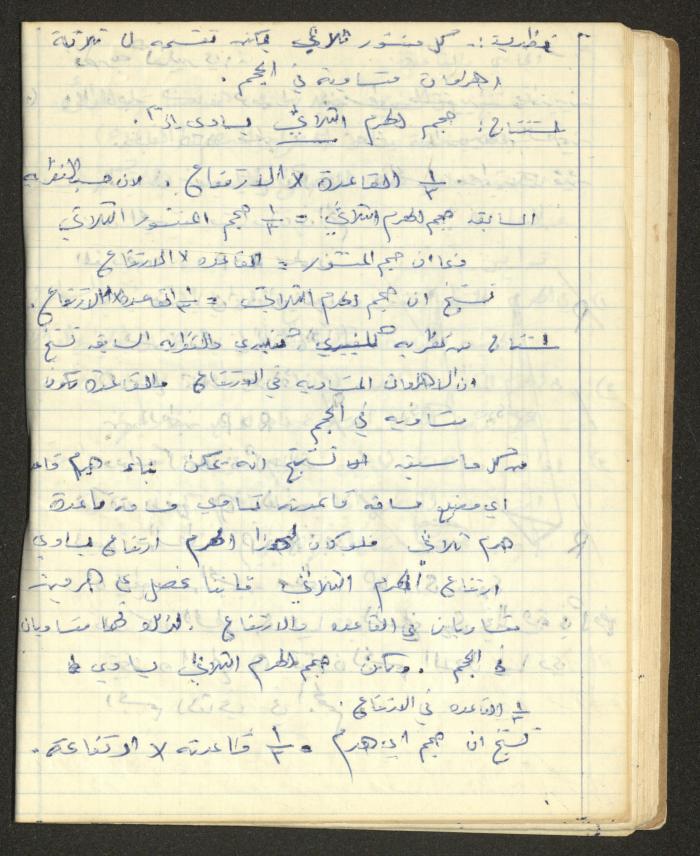 نظرية :- كل منشور ثلاثي يمكن تقسيمه ل ثلاثة
اهرامات متساوية في الحجم .
استنتاج : حجم الهرم الثلاثي يساوي
١/٣ القاعدة × الارتفاع . لان حسب النظريه
السابقه حجم الهرم الثلاثي = ١/٣ حجم المنشور الثلاثي
وبما ان حجم المنشور = القاعده × الارتفاع
نستنتج ان حجم الهرم الثلاثي = ١/٣ القاعدة × الارتفاع .
استنتاج من نظريه والنظريه السابقه نستنتج
ان الاهرامات المتساويه في الارتفاع والقاعدة تكون
متساويه في الحجم
من كل ما سبق نستنتج انه يمكن بناء هرم قاعدته
اي مضلع مساحة قاعدته تساوي مساحة قاعدة
هرم ثلاثي فلو كان لهذا الهرم ارتفاع يساوي
ارتفاع الهرم الثلاثي فاننا نحصل على هرمين
متساويين في القاعده والارتفاع . لذلك فهما متساويان
في الحجم . ولكن حجم الهرم الثلاثي يساوي
١/٣ القاعده في الارتفاع .
نستنتج ان حجم اي هرم = ١/٣ قاعدته × ارتفاعه .